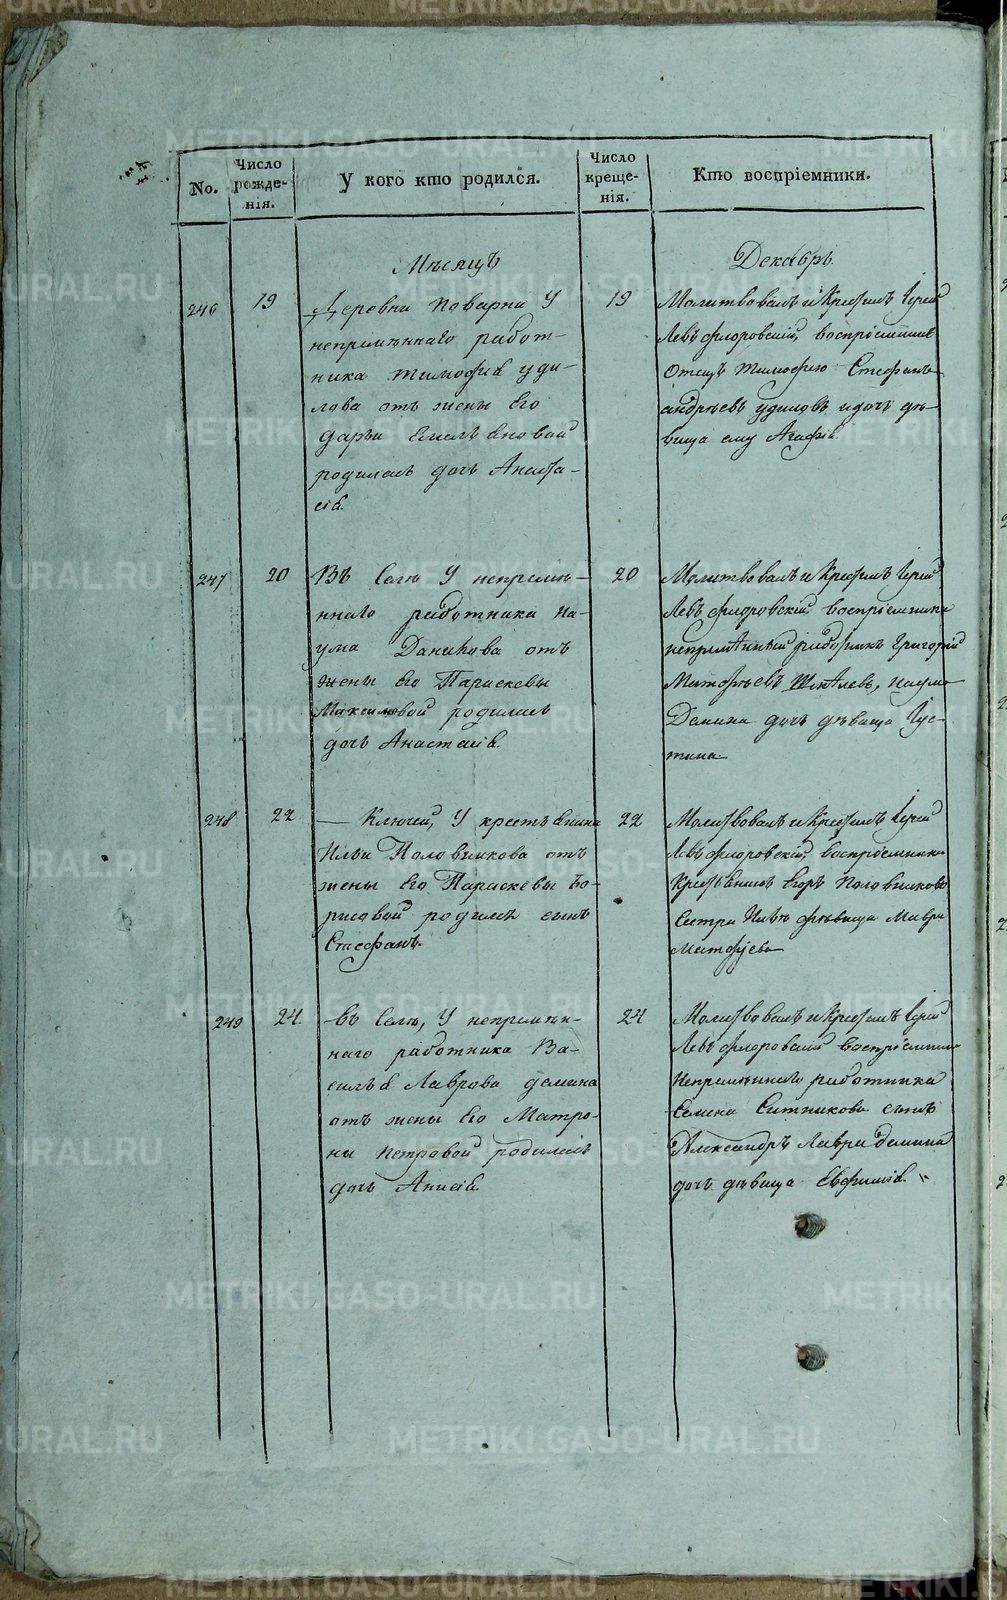 No.
Число рожде-нія.
У кого кто родился.
Число креще-нія.
Кто воспріемники.
Мѣсяцъ
Декабрь
246
19
Деревни Поварни У
непремѣннаго работ-
ника Тимофѣя Уди-
лова отъ жены Его
Дарьи Емельяновой
родилась дочь Анаста-
сія.
19
Молитвовалъ и Крестилъ Іерей
Левъ Флоровскій, воспріемники
Отецъ Тимофею Стефанъ
Андреевъ Удиловъ и дочь дѣ-
вица ему Агафія.
247
20
Въ Селѣ У непремѣ-
ннаго работника На-
ума Данилова отъ
жены Его Параскевы
Максимовой родилась
дочь Анастасія.
20
Молитвовалъ и Крестилъ Іерей
Левъ Флоровскій воспріемники
непремѣнный работникъ Григорій
Матфѣевъ Наума
Данила дочь дѣвица Іус-
тина
248
22
— Ключей, У крестьянина
Ильи Половникова отъ
жены Его Параскевы Бо-
рисовой родился сынъ
Стефанъ.
22
Молитвовалъ и Крестилъ Іерей
Левъ Флоровскій, воспріемники
Крестьянинъ Егоръ Половниковъ
Сестра Ильѣ дѣвица Мавра
Матфіева
249
24.
въ Селѣ, У непремѣн-
наго работника Ва-
силья Лаврова Демина
отъ жены Его Матро-
ны Петровой родилась
дочь Анисія.
24
Молитвовалъ и Крестилъ Іерей
Левъ Флоровскій воспріемники
Непремѣннаго работника
Семена Ситникова сынъ
Александръ Лавра Демина
дочь дѣвица Евфимія.
METRIKI.GASO-URAL.RU